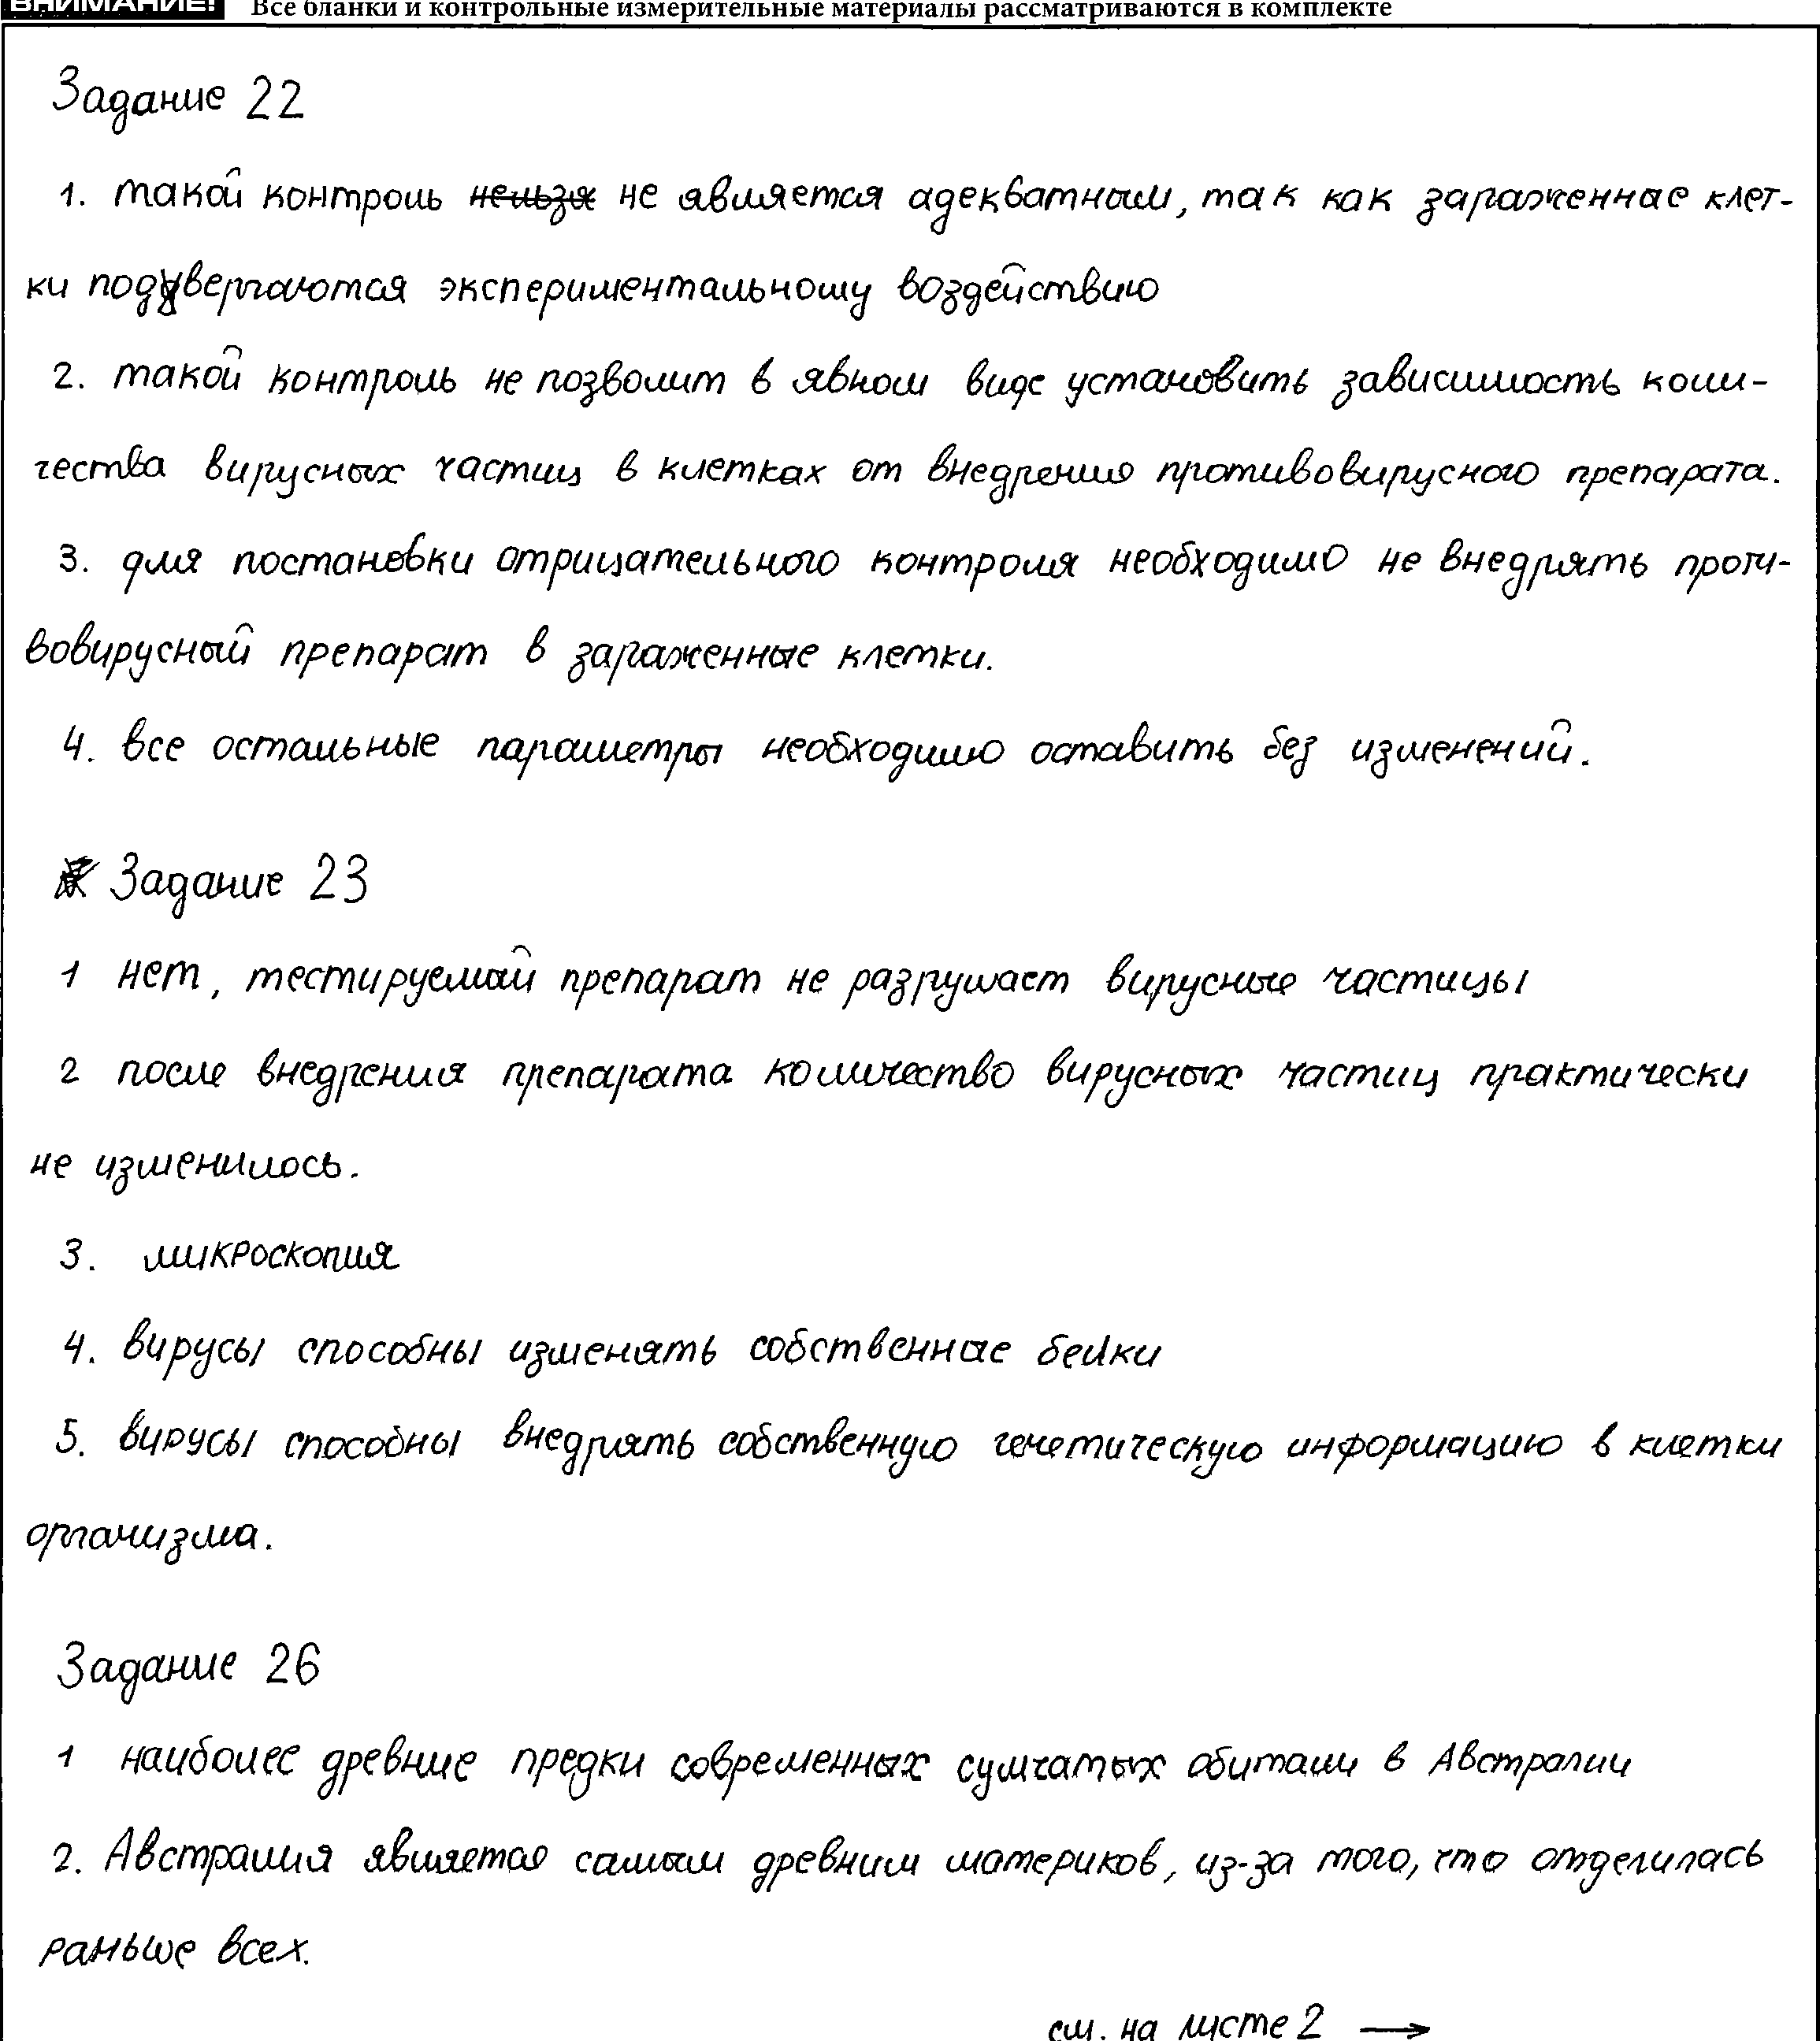 ВНИМАНИЕ! Все бланки и контрольные измерительные материалы рассматриваются в комплекте
Задание 22
1. такой контроль нельзя не является адекватным, так как зараженные клет-
ки подвергаются экспериментальному воздействию
2. такой контроль не позволит в явном виде установить зависимость коли-
чества вирусных частиц в клетках от внедрения противовирусного препарата.
3. для постановки отрицательного контроля необходимо не внедрять проти-
вовирусный препарат в зараженные клетки.
4. все остальные параметры необходимо оставить без изменений.
Задание 23
1 нет, тестируемый препарат не разрушает вирусные частицы
2 после внедрения препарата количество вирусных частиц практически
не изменилось.
3. микроскопия
4. вирусы способны изменять собственные белки
5. вирусы способны внедрять собственную генетическую информацию в клетки
организма.
Задание 26
1 наиболее древние предки современных сумчатых обитали в Австралии
2. Австралия является самым древним материков, из-за того, что отделилась
раньше всех.
см. на листе 2 →